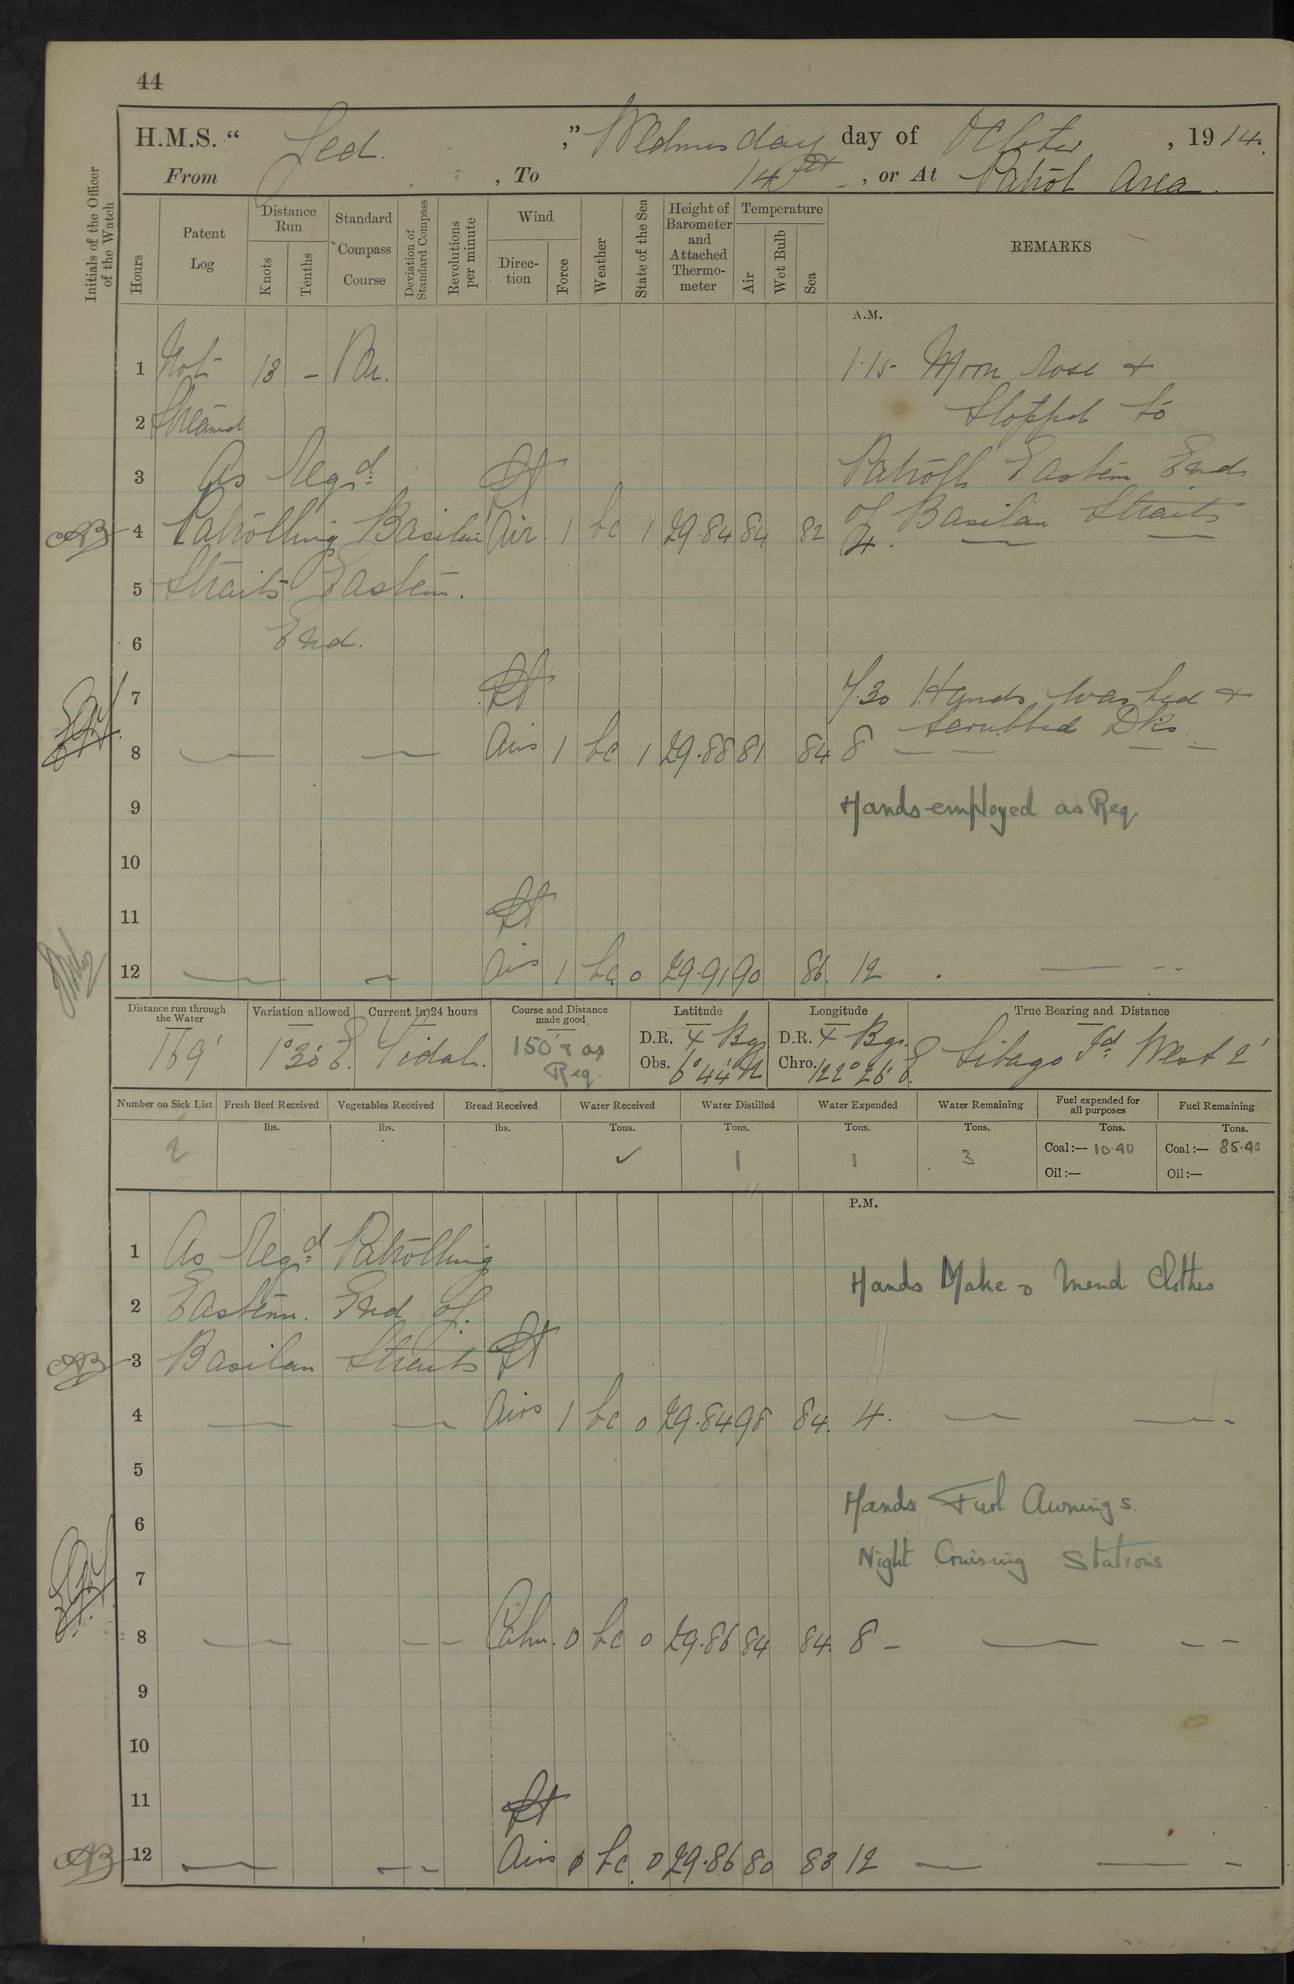 44
H.M.S. " Jed. ," Wednesday day of October , 1914.
From , To 14th , or At Patrol Area.
Initials of the Officer of the Watch
Hours
Patent Log
Distance Run
Knots
Tenths
Standard Compass Course
Deviation of Standard Compass
Revolutions per minute
Wind
Direction
Force
Weather
State of the Sea
Height of Barometer and Attached Thermometer
Temperature
Air
Wet Bulb
Sea
REMARKS
A.M.
1 Not 13 – Var. 1.15 Moon rose +
2 Streamed Stopped to
3 As Reqd. Lt Patroll Eastern End
4 Patrolling Basilan Air 1 bc 1 29.84 84 82 of Basilan Straits
4.
5 Straits Eastern.
6 End.
7 Lt 7.30 Hands washed +
scrubbed Dks
8 Airs 1 bc 1 29.88 81 84 8
9 Hands employed as Req
10
11 Lt
12 Airs 1 bc 0 29.91 90 86. 12
Distance run through the Water
169'
Variation allowed
1°30' E.
Current in 24 hours
Tidal.
Course and Distance made good
150' & as Req.
Latitude
D.R. 4 Bgs
Obs. 6° 44' N
Longitude
D.R. 4 Bgs.
Chro. 122° 26' E.
True Bearing and Distance
E Sibago Id. West 2'
Number on Sick List
2
Fresh Beef Received
lbs.
Vegetables Received
lbs.
Bread Received
lbs.
Water Received
Tons.
✓
Water Distilled
Tons.
1
Water Expended
Tons.
1
Water Remaining
Tons.
3
Fuel expended for all purposes
Tons.
Coal:— 10.40
Oil:—
Fuel Remaining
Tons.
Coal:— 85.40
Oil:—
P.M.
1 As Reqd. Patrolling
Hands Make & Mend Clothes
2 Eastern. End of.
3 Basilan Straits Lt
4 Airs 1 bc 0 29.84 98 84. 4.
5
Hands Furl Awnings.
6
Night Cruising Stations
7
8 Calm. 0 bc 0 29.86 84 84. 8 –
9
10
11 Lt
12 Airs 0 bc. 0 29.86 80 83 12